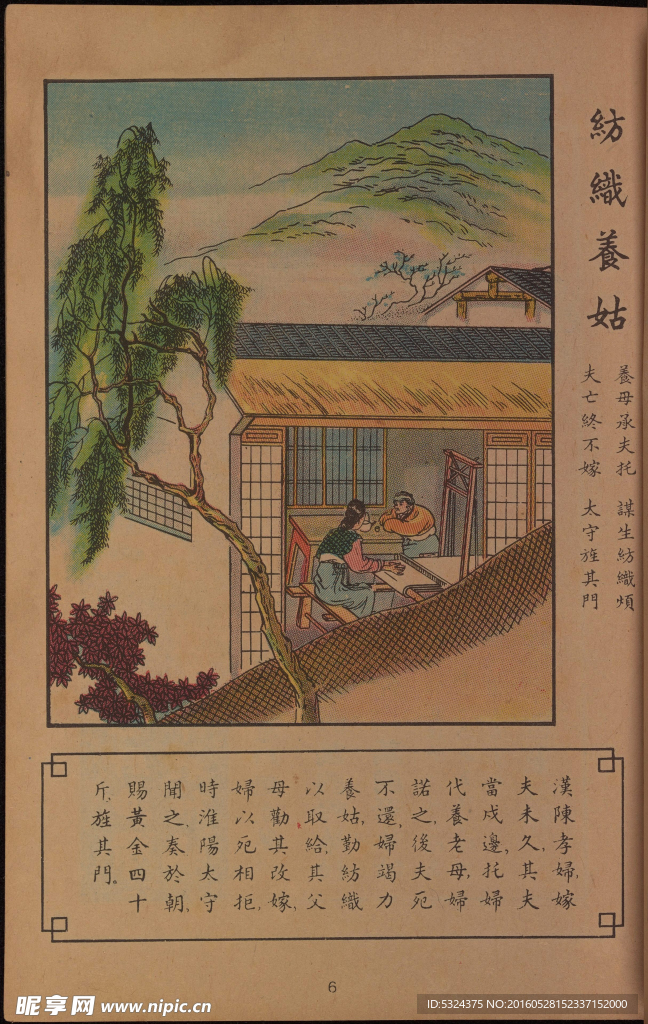 紡織養姑
養母承夫托　謀生紡織煩
夫亡終不嫁　太守旌其門
漢陳孝婦，嫁
夫未久，其夫
當戍邊，托婦
代養老母，婦
諾之，後夫死
不還，婦竭力
養姑，勤紡織
以取給，其父
母勸其改嫁，
婦以死相拒，
時淮陽太守
聞之，奏於朝，
賜黃金四十
斤，旌其門。
6
昵享网 www.nipic.cn
ID:5324375 NO:20160528152337152000